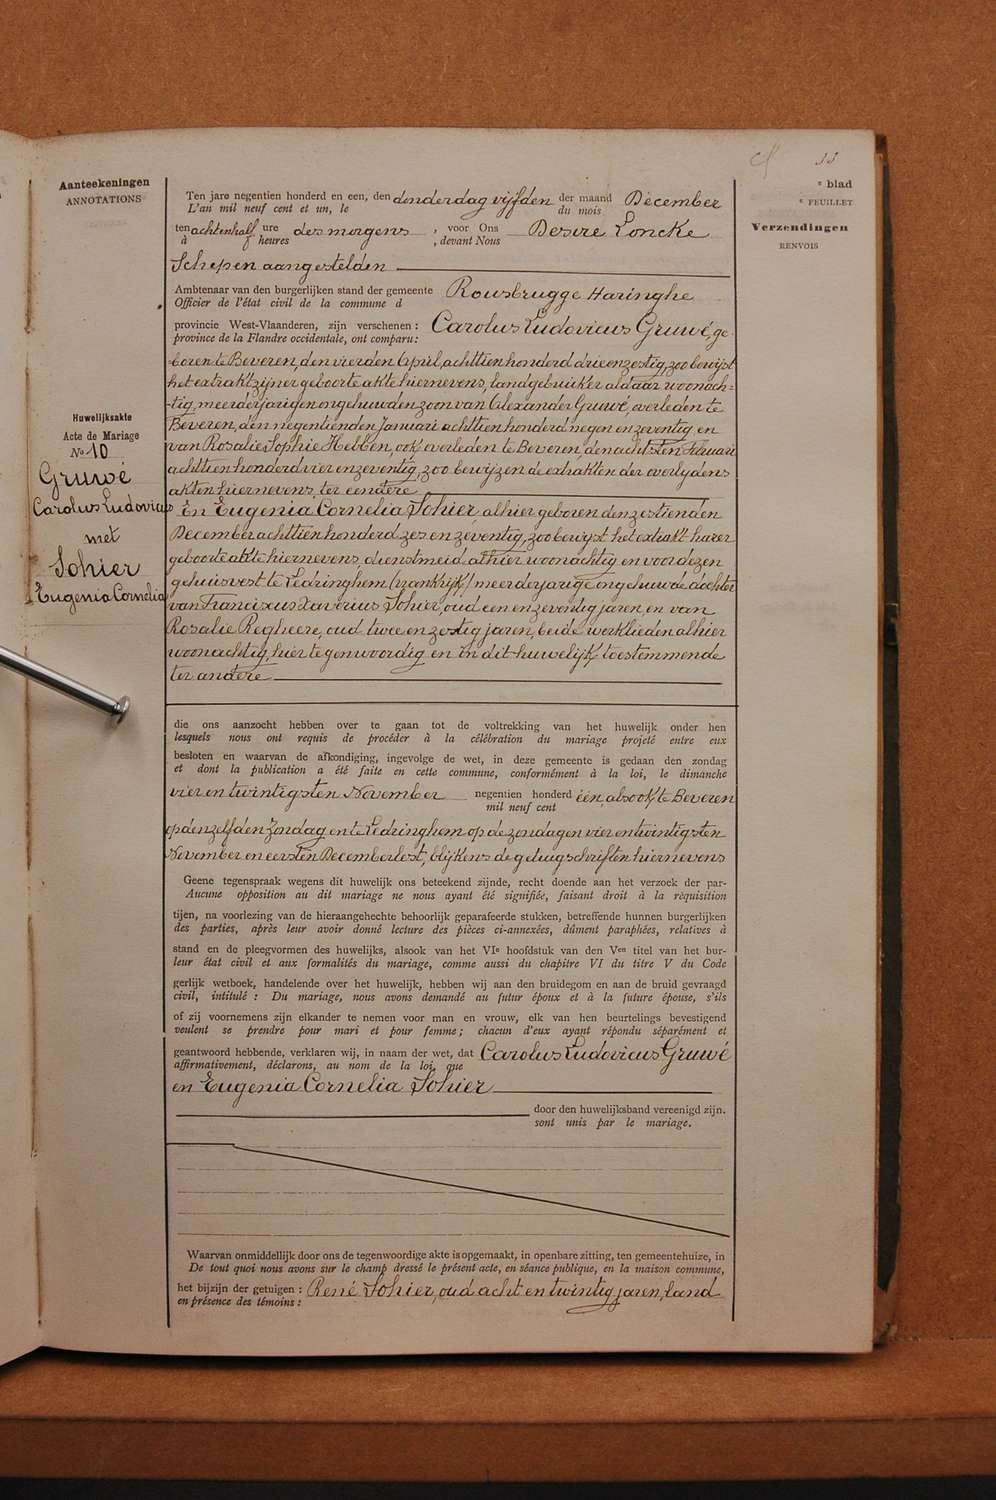 33
Aanteekeningen
ANNOTATIONS
e blad
e FEUILLET
Verzendingen
RENVOIS
Ten jare negentien honderd en een, den denderdag vijfden der maand December
L'an mil neuf cent et un, le du mois
ten achtenhalf ure des morgens , voor Ons Desiré Loncke
à heures , devant Nous
Schepen aangestelden
Ambtenaar van den burgerlijken stand der gemeente Rousbrugge Haringhe
Officier de l'état civil de la commune d
provincie West-Vlaanderen, zijn verschenen : Carolus Ludovicus Gruwé, ge-
province de la Flandre occidentale, ont comparu :
boren te Beveren, den vierden April achttien honderd drie en zestig, zoo bewijst
het extrakt zijner geboorte akte hiernevens, landgebruiker aldaar woonach-
-tig, meerderjarigen ongehuwden zoon van Alexander Gruwé, overleden te
Beveren, den negentienden Januari achttien honderd negen en zeventig en
van Rosalie Sophie Hebben, ook overleden te Beveren, den achtsten Februari
achttien honderd vier en zeventig, zoo bewijzen de extrakten der overlijdens
akten hiernevens, ter eendere
En Eugenia Cornelia Sohier alhier geboren den zestienden
December achttien honderd zes en zeventig, zoo bewijst het extrakt harer
geboorte akte hiernevens, dienstmeid, alhier woonachtig en voordezen
gehuisvest te Ledringhem (vrankrijk) meerderjarige ongehuwde dochter
van Franciscus Xaverius Sohier, oud een en zeventig jaren, en van
Rosalie Regheere, oud twee en zestig jaren, beide werklieden alhier
woonachtig, hier tegenwoordig en in dit huwelijk toestemmende
ter andere
Huwelijksakte
Acte de Mariage
No 10
Gruwé
Carolus Ludovicus
met
Sohier
Eugenia Cornelia
die ons aanzocht hebben over te gaan tot de voltrekking van het huwelijk onder hen
lesquels nous ont requis de procéder à la célébration du mariage projeté entre eux
besloten en waarvan de afkondiging, ingevolge de wet, in deze gemeente is gedaan den zondag
et dont la publication a été faite en cette commune, conformément à la loi, le dimanche
vier en twintigsten November negentien honderd één, alsook te Beveren
mil neuf cent
op denzelfden Zondag en te Ledringhem op de zondagen vier en twintigsten
November en eersten December lest, blijkens de getuigschriften hiernevens
Geene tegenspraak wegens dit huwelijk ons beteekend zijnde, recht doende aan het verzoek der par-
Aucune opposition au dit mariage ne nous ayant été signifiée, faisant droit à la réquisition
tijen, na voorlezing van de hieraangehechte behoorlijk geparafeerde stukken, betreffende hunnen burgerlijken
des parties, après leur avoir donné lecture des pièces ci-annexées, dûment paraphées, relatives à
stand en de pleegvormen des huwelijks, alsook van het VIe hoofdstuk van den Ven titel van het bur-
leur état civil et aux formalités du mariage, comme aussi du chapitre VI du titre V du Code
gerlijk wetboek, handelende over het huwelijk, hebben wij aan den bruidegom en aan de bruid gevraagd
civil, intitulé : Du mariage, nous avons demandé au futur époux et à la future épouse, s'ils
of zij voornemens zijn elkander te nemen voor man en vrouw, elk van hen beurtelings bevestigend
veulent se prendre pour mari et pour femme ; chacun d'eux ayant répondu séparément et
geantwoord hebbende, verklaren wij, in naam der wet, dat Carolus Ludovicus Gruwé
affirmativement, déclarons, au nom de la loi, que
en Eugenia Cornelia Sohier
door den huwelijksband vereenigd zijn.
sont unis par le mariage.
Waarvan onmiddellijk door ons de tegenwoordige akte is opgemaakt, in openbare zitting, ten gemeentehuize, in
De tout quoi nous avons sur le champ dressé le présent acte, en séance publique, en la maison commune,
het bijzijn der getuigen : René Sohier, oud acht en twintig jaren, land
en présence des témoins :